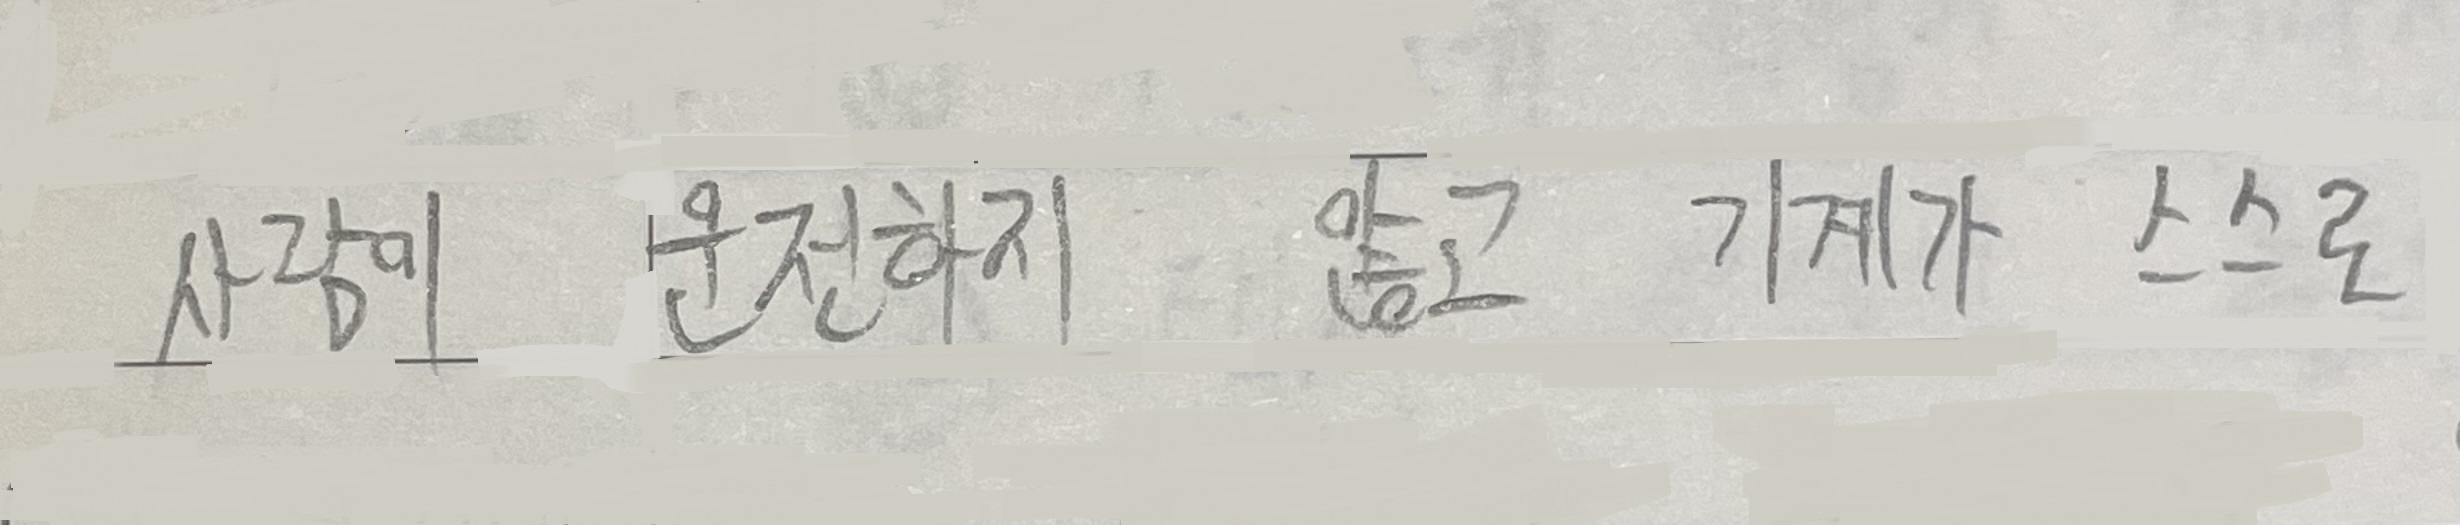 사람이 운전하지 않고 기계가 스스로